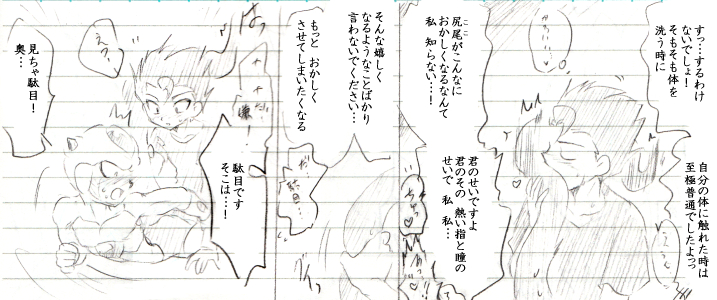 すっ…するわけ
ないでしょ！
そもそも体を
洗う時に
自分の体に触れた時は
至極普通でしたよっ
尻尾がこんなに
ここ
おかしくなるなんて
私 知らない…！
君のせいですよ
君のその 熱い指と瞳の
せいで 私 私…
そんな嬉しく
なるようなことばかり
言わないでください…
もっと おかしく
させてしまいたくなる
だ
駄目…
グイッ
はっ
えっ
駄目です
そこは…！
見ちゃ駄目！
奥…